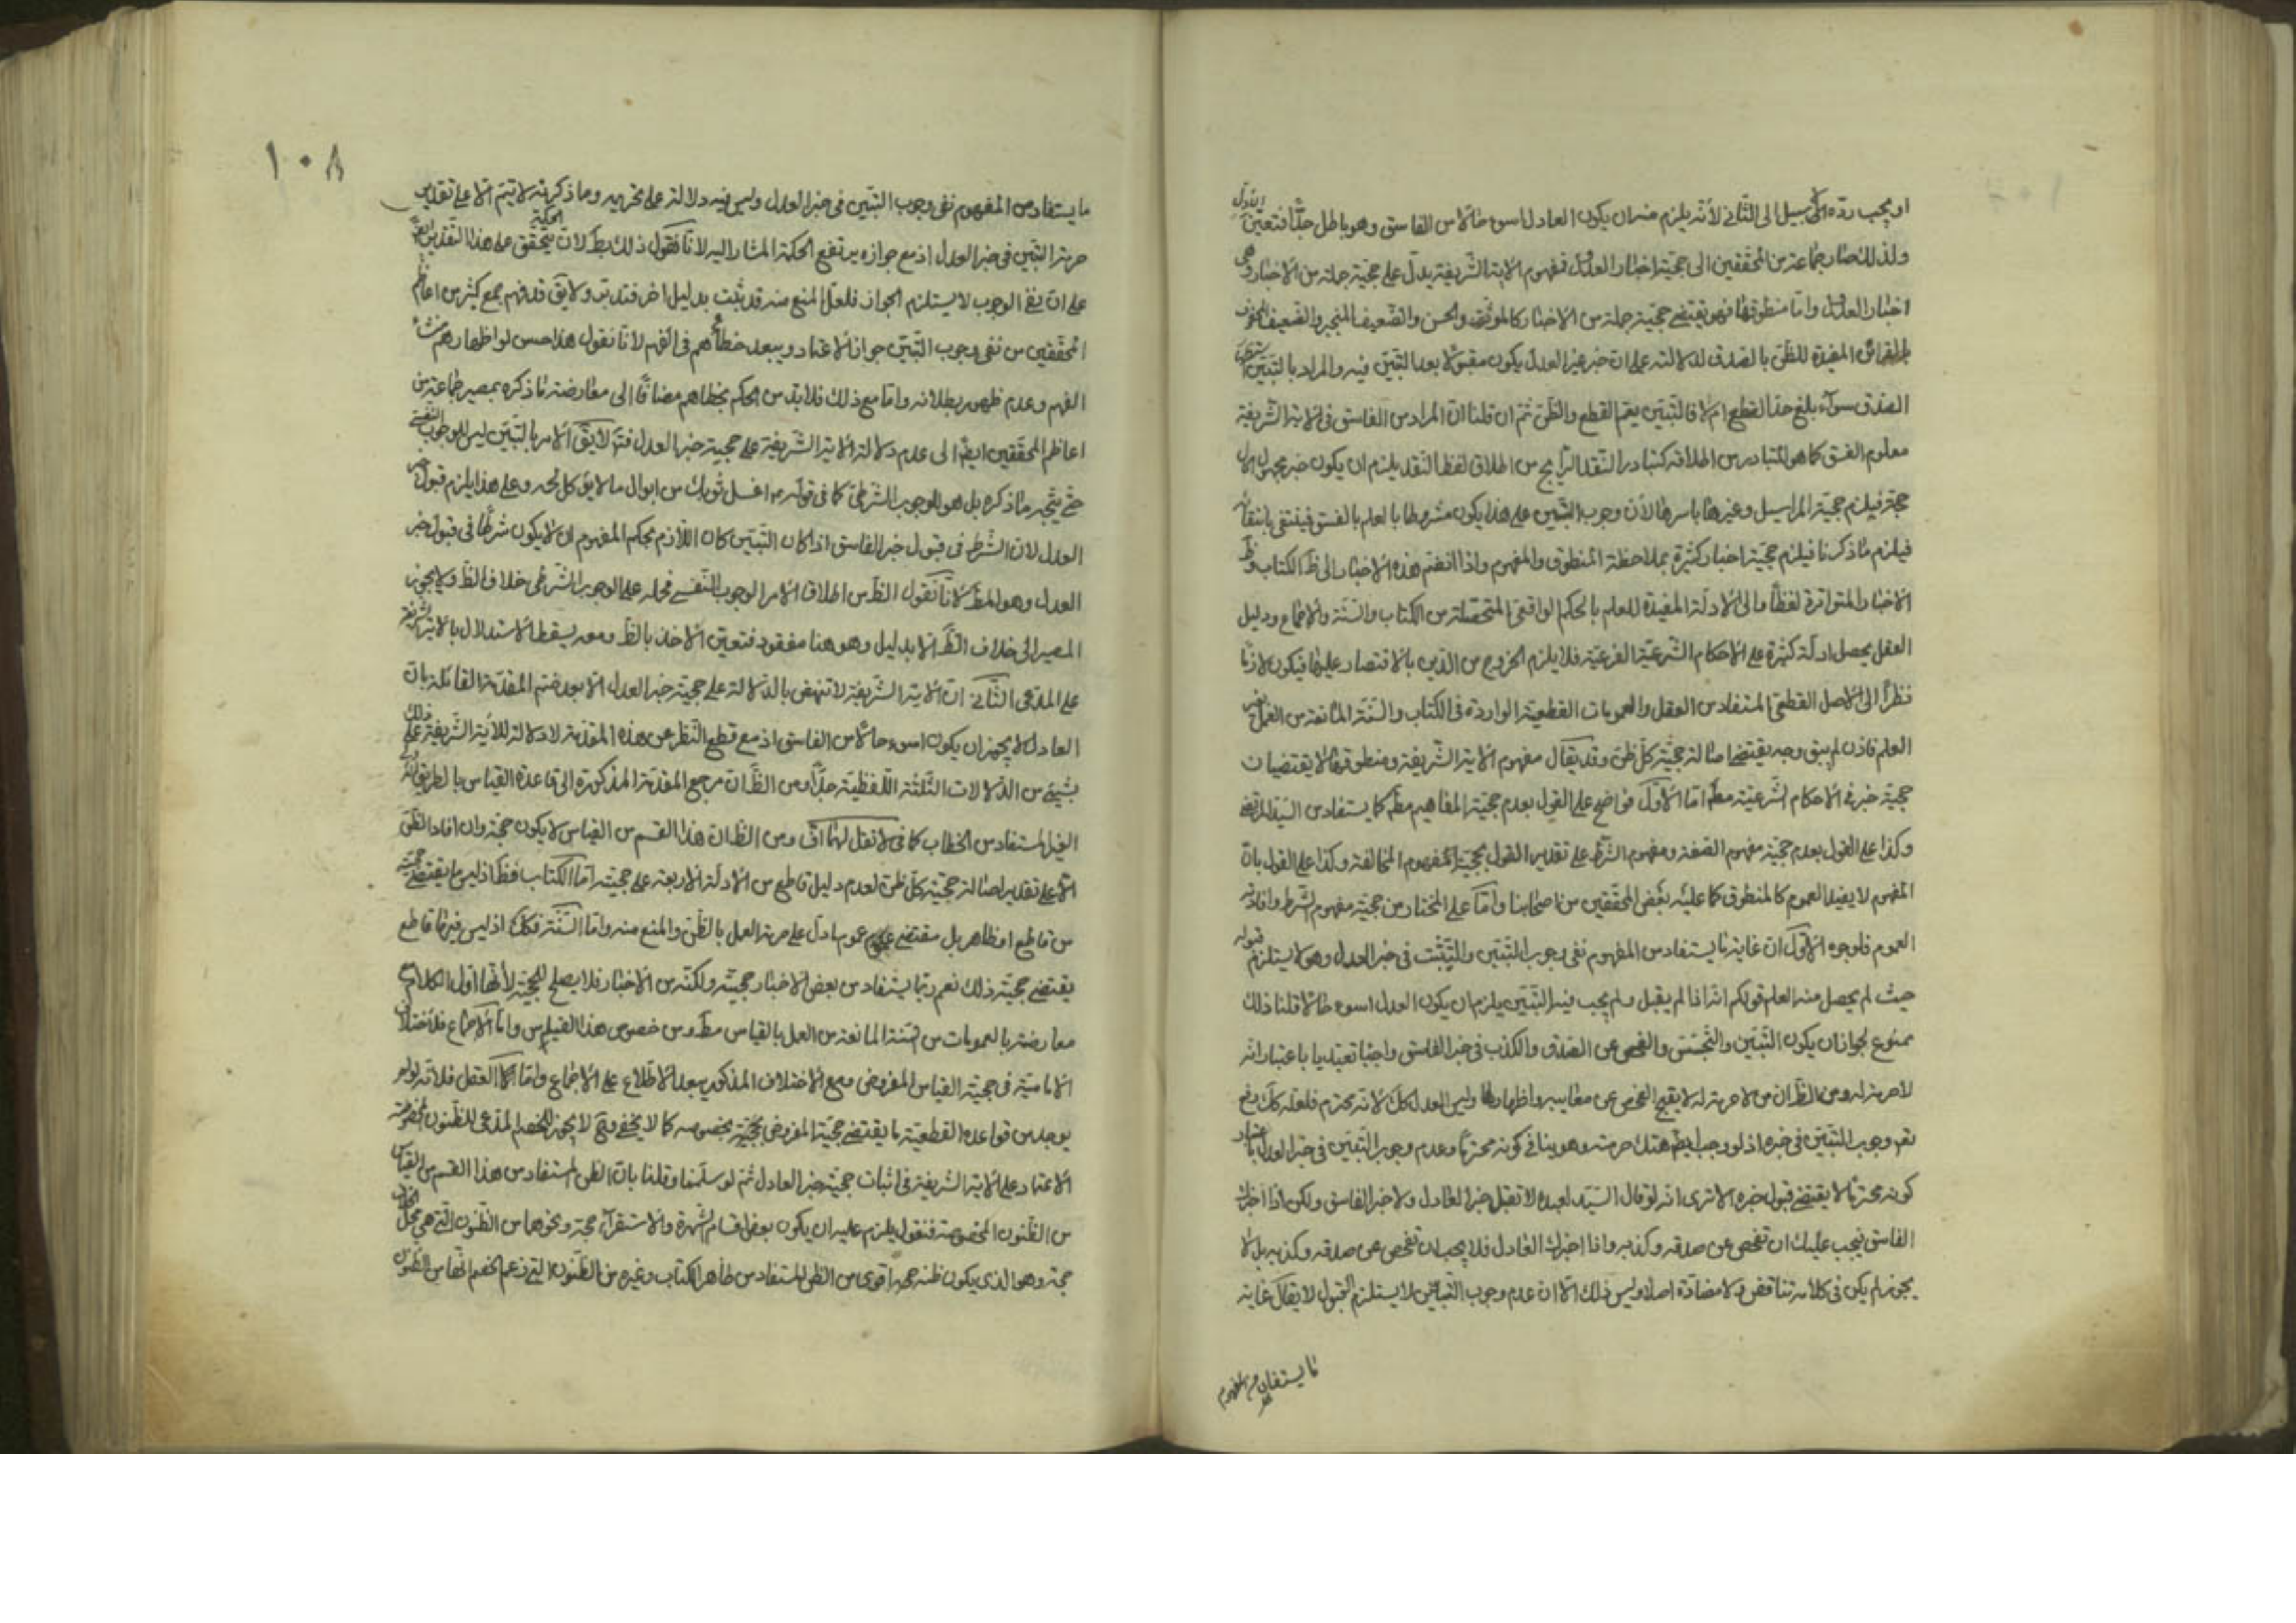 او يجب ردّه لا سبيل الى الثّانى لأنّه يلزم منه ان يكون العادل اسوء حالا من الفاسق وهو باطل جدّا فتعيّن الأوّل
ولذلك صار جماعة من المحقّقين الى حجيّة اخبار العدل فمفهوم الاية الشّريفة يدلّ على حجيّة جملة من الأخبار وهى
اخبار العدل وامّا منطوقها فهو يقتضى حجيّة جملة من الاخبار كالموثّق والحسن والضّعيف المنجبر والضّعيف
بالقرائن المفيدة للظّن بالصّدق لدلالته على انّ خبر غير العدل يكون مقبولا بعد التّبيّن فيه والمراد بالتّبيّن
الصّدق سوآء بلغ حدّ القطع ام لا فالتّبيّن يعمّ القطع والظّنّ ثمّ ان قلنا انّ المراد من الفاسق فى الاية الشّريفة
معلوم الفسق كما هو المتبادر من اطلاقه كتبادر النّقد الرّايج من اطلاق لفظ النّقد يلزم ان يكون خبر مجهول الحال
حجّة فيلزم حجيّة المراسيل وغيرها باسرها لأن وجوب التّبيّن على هذا يكون مشروطا بالعلم بالفسق فينتفى بانتفائه
فيلزم ما ذكرنا فيلزم حجيّة اخبار كثيرة بملاحظة المنطوق والمفهوم واذا انضمّ هذه الأخبار الى ظ الكتاب وظ
الاخبار المتواترة لفظا والى الأدلّة المفيدة للعلم بالحكم الواقعىّ المتحصّلة من الكتاب والسّنّة والإجماع ودليل
العقل يحصل ادلّة كثيرة على الأحكام الشّرعيّة الفرعيّة فلا يلزم الخروج من الدّين بالاقتصار عليها فيكون لازما
نظرا الى الأصل القطعىّ المستفاد من العقل والعمومات القطعيّة الواردة فى الكتاب والسّنّة المانعة من العمل بغير
العلم فاذن لم يبق وجه يقتضى اصالة حجيّة كلّ ظنّ وقد يقال مفهوم الاية الشّريفة ومنطوقها لا يقتضيان
حجيّة خبر فى الأحكام الشّرعيّة مطّ امّا الأوّل فواضح على القول بعدم حجيّة المفاهيم مطّ كما يستفاد من السّيّد المرتضى
وكذا على القول بعدم حجيّة مفهوم الصّفة ومفهوم الشّرط على تقدير القول بحجيّة المفهوم المخالفة وكذا على القول بانّ
المفهوم لا يفيد العموم كالمنطوق كما عليه بعض المحقّقين من اصحابنا وامّا على المختار من حجيّة مفهوم الشّرط وافادته
العموم فلوجوه الأوّل انّ غاية ما يستفاد من المفهوم نفى وجوب التّبيّن والتّثبّت فى خبر العدل وهو لا يستلزم قبوله
حيث لم يحصل منه العلم قولكم انّه اذا لم يقبل ولم يجب فيه التّبيّن يلزم ان يكون العدل اسوء حالا قلنا ذلك
ممنوع لجواز ان يكون التّبيّن والتّجسّس والفحص عن الصّدق والكذب فى خبر الفاسق واجبا تعبّديا باعتبار انّه
لا حرمة له ومن الظّ ان من لا حرمة له لا يقبح الفحص عن معايبه واظهارها وليس العدل كك لأنّه محترم فلعلّه كك
وجوب التّبيّن فى خبره اذ لو وجب ايضا هتك حرمته وهو ينافى كونه محترما وعدم وجوب التّبيّن فى خبر العدل باعتبار
كونه محترما لا يقتضى قبول خبره الا ترى انّه لو قال السّيّد لعبده لا تقبل خبر العادل ولا خبر الفاسق ولكن اذا اخبرك
الفاسق فيجب عليك ان تفحص عن صدقه وكذبه واذا اخبرك العادل فلا يجب ان تفحص عن صدقه وكذبه بل لا
يجوز لم يكن فى كلامه تناقض ولا مضادّة اصلا وليس ذلك الّا ان عدم وجوب التّبيّن لا يستلزم القبول لا يقال غاية
ما يستفاد من المفهوم
١٠٨
ما يستفاد من المفهوم نفى وجوب التّبيّن فى خبر العدل وليس فيه دلالة على تحريمه وما ذكرته لا يتمّ الّا على تقدير
حرمة التّبيّن فى خبر العدل اذ مع جوازه يرتفع الحكمة المشار اليه لانّا نقول ذلك بط لانّ الحكمة يتحقّق على هذا التّقدير
على انّ نفى الوجوب لا يستلزم الجواز فلعلّ المنع منه قد ثبت بدليل اخر فتدبّر ولا يق قد فهم جمع كثير من اعاظم
المحقّقين من نفى وجوب التّبيّن جواز الاعتماد ويبعد خطائهم فى الفهم لانّا نقول هذا حسن لو لا ظهار هم منشاء
الفهم وعدم ظهور بطلانه وامّا مع ذلك فلا بدّ من الحكم بخطاهم مضافا الى معارضة ما ذكره بمصير جماعة من
اعاظم المحقّقين ايضا الى عدم دلالة الاية الشّريفة على حجيّة خبر العدل فتدبّر لا يق الامر بالتّبيّن ليس للوجوب النّفسى
حتّى يتّجه ما ذكره بل هو للوجوب الشّرطى كما فى قوله ع اغسل ثوبك من ابوال ما لا يؤكل لحمه وعلى هذا يلزم قبول خبر
العدل لانّ الشّرط فى قبول خبر الفاسق اذا كان التّبيّن كان اللّازم بحكم المفهوم ان لا يكون شرطا فى قبول خبر
العدل وهو المط لانّا نقول الظّ من اطلاق الامر الوجوب النّفسى فحمله على الوجوب الشّرطى خلاف الظّ ولا يجوز
المصير الى خلاف الظّ الّا بدليل وهو هنا مفقود فتعيّن الأخذ بالظّ ومعه يسقط الاستدلال بالاية الشّريفة
على المدّعى الثّانى انّ الاية الشّريفة لا تنهض بالدّلالة على حجيّة خبر العدل الّا بعد ضمّ المقدّمة القائلة بانّ
العادل لا يجوز ان يكون اسوء حالا من الفاسق اذ مع قطع النّظر عن هذه المقدّمة لا دلالة للأية الشّريفة على ذلك
بشىء من الدّلالات الثّلثة اللّفظيّة جدّا ومن الظّ انّ مرجع المقدّمة المذكورة الى قاعدة القياس بالطريق
الغير المستفاد من الخطاب كما فى لا تقل لهما افّ ومن الظّ انّ هذا القسم من القياس لا يكون حجّة وان افاد الظّنّ
الّا على تقدير اصالة حجيّة كلّ ظنّ لعدم دليل قاطع من الأدلّة الأربعة على حجيّته امّا الكتاب فظ اذ ليس ما يقتضى حجيّته
من قاطع او ظاهر بل مقتضى عموم ما دلّ على حرمة العمل بالظّنّ والمنع منه وامّا السّنّة فكك اذ ليس فيها قاطع
يقتضى حجيّة ذلك نعم ربّما يستفاد من بعض الأخبار حجيّته ولكنّه من الأخبار فلا يصلح للحجيّة لأنّها اوّل الكلام
معارضة بالعمومات من السّنة المانعة من العمل بالقياس مطّ ومن خصوص هذا القياس وامّا الإجماع فلاختلاف
الاماميّة فى حجيّة القياس المفروض ومع الاختلاف المذكور يبعد الاطّلاع على الاجماع وامّا العقل فلانّه لم
يوجد من قواعده القطعيّة ما يقتضى حجيّة المفروض بخصوصه كما لا يخفى وح لا يجوز للخصم المدّعى للظّنون المخصوصة
الاعتماد على الاية الشّريفة فى اثبات حجيّة خبر العادل ثمّ لو سلّمنا وقلنا بانّ الظن المستفاد من هذا القسم من القياس
من الظّنون المخصوصة فنقول يلزم عليه ان يكون بعض اقسام الشّهرة والاستقرآء حجّة ونحوهما من الظّنون الّتى هى محلّ الخلاف
حجّة وهو الذى يكون ظنه اقوى من الظن المستفاد من ظاهر الكتاب وغيره من الظّنون الّتى زعم الخصم انّها من الظّنون